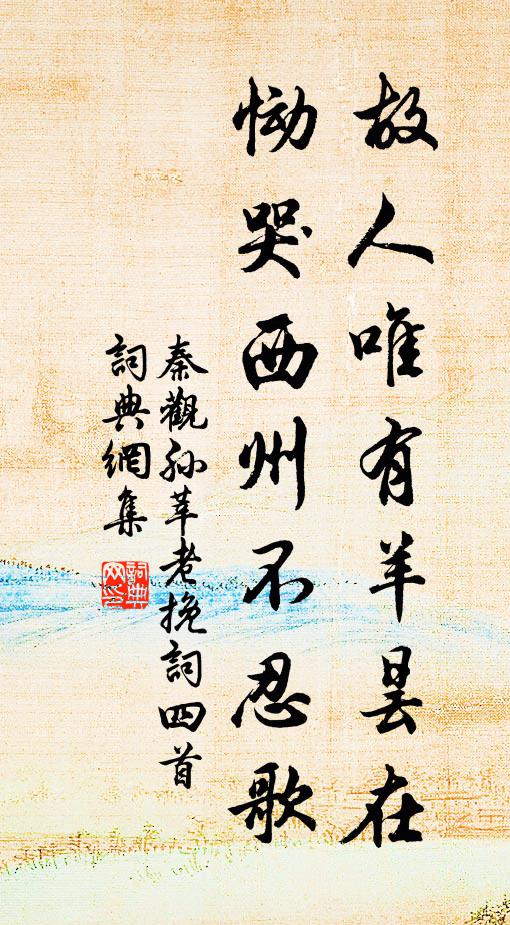 故人唯有羊昙在
恸哭西州不忍歌
秦觀孙莘老挽詞四首
詞典網集
詞典网印